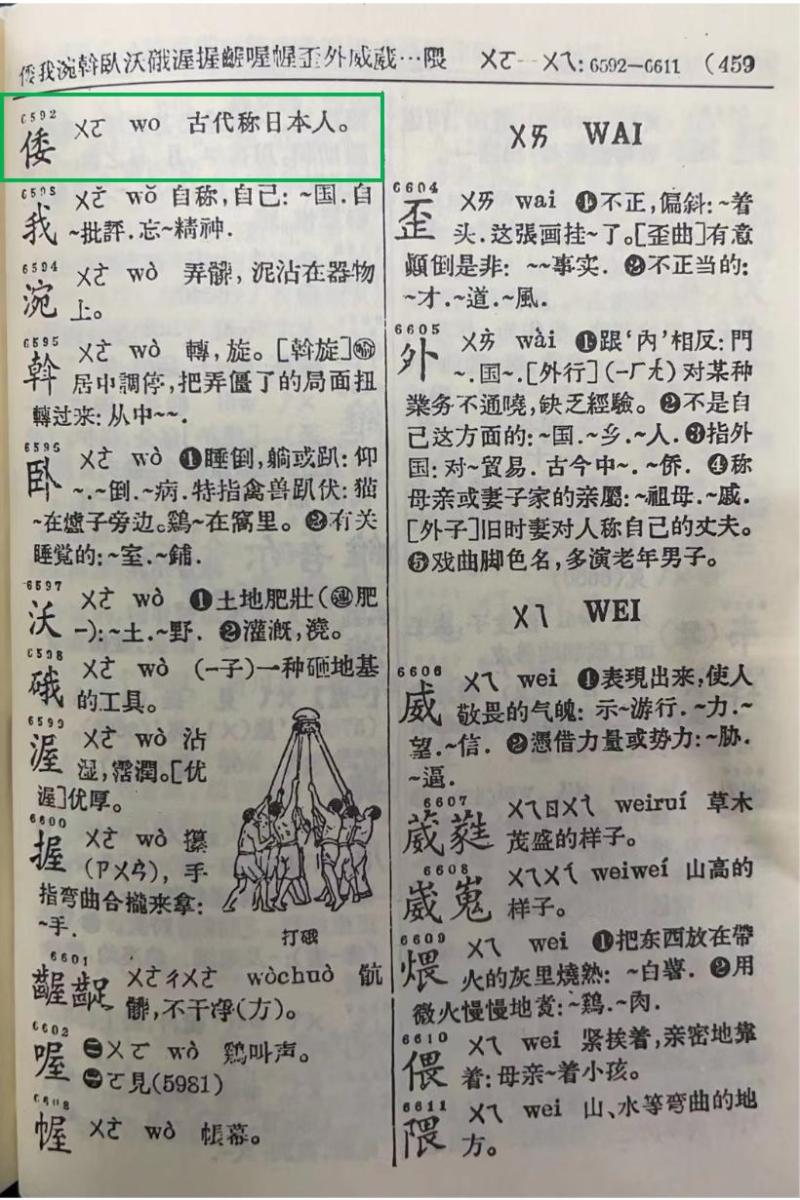 倭我涴斡臥沃硪渥握齷喔幄歪外威葳…隈 ㄨㄛ—ㄨㄟ: 6592—6611 (459
6592
倭 ㄨㄛ wo 古代称日本人。
6593
我 ㄨㄛˇ wǒ 自称,自己: ~国.自
~批評.忘~精神.
6594
涴 ㄨㄛˋ wò 弄髒,泥沾在器物
上。
6595
斡 ㄨㄛˋ wò 轉,旋。[斡旋]
居中調停,把弄僵了的局面扭
轉过来: 从中~~.
6596
卧 ㄨㄛˋ wò ❶睡倒,躺或趴: 仰
~.~倒.~病.特指禽兽趴伏: 猫
~在爐子旁边。鷄~在窩里。❷有关
睡覚的:~室.~鋪.
6597
沃 ㄨㄛˋ wò ❶土地肥壯(肥
—):~土.~野. ❷灌漑,澆。
6598
硪 ㄨㄛˋ wò (—子)一种砸地基
的工具。
6599
渥 ㄨㄛˋ wò 沾
湿,霑潤。[优
渥]优厚。
6600
握 ㄨㄛˋ wò 攥
(ㄗㄨㄢˋ),手
指弯曲合攏来拿:
~手.
打硪
6601
齷齪 ㄨㄛˋㄔㄨㄛˋ wòchuò 骯
髒,不干凈(方)。
6602
喔 ㊀ㄨㄛ wò 鷄叫声。
㊁ㄛ見(5981)
6603
幄 ㄨㄛˋ wò 帳幕。
ㄨㄞ WAI
6604
歪 ㄨㄞ wai ❶不正,偏斜:~着
头.这張画挂~了。[歪曲]有意
顚倒是非: ~~事实. ❷不正当的:
~才.~道.~風.
6605
外 ㄨㄞˋ wài ❶跟‘內’相反: 門
~.国~.[外行](—ㄏㄤˊ)对某种
業务不通曉,缺乏經驗。❷不是自
己这方面的:~国.~乡.~人.❸指外
国: 对~貿易. 古今中~. ~侨. ❹称
母亲或妻子家的亲屬:~祖母.~戚.
[外子]旧时妻对人称自己的丈夫。
❺戏曲脚色名,多演老年男子。
ㄨㄟ WEI
6606
威 ㄨㄟ wei ❶表現出来,使人
敬畏的气魄: 示~游行.~力.~
望.~信. ❷憑借力量或势力:~胁.
~逼.
6607
葳蕤 ㄨㄟㄖㄨㄟˊ weiruí 草木
茂盛的样子。
6608
崴嵬 ㄨㄟㄨㄟˊ weiweí 山高的
样子。
6609
煨 ㄨㄟ wei ❶把东西放在帶
火的灰里燒熟: ~白薯. ❷用
微火慢慢地煑:~鷄.~肉.
6610
偎 ㄨㄟ wei 紧挨着,亲密地靠
着: 母亲~着小孩。
6611
隈 ㄨㄟ wei 山、水等弯曲的地
方。